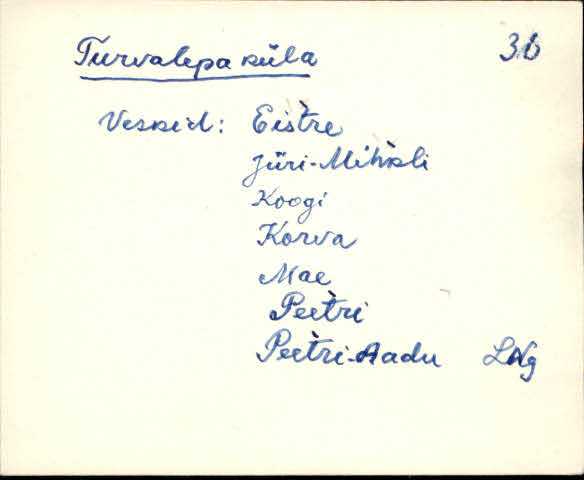 Turvalepa küla 36
Veskid: Eistre
Jüri-Mihkli
Koogi
Korva
Mae
Peetri
Peetri-Aadu LNg